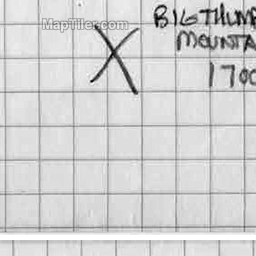 MapTiler.com
BIG THUMP
MOUNTA
1700
X